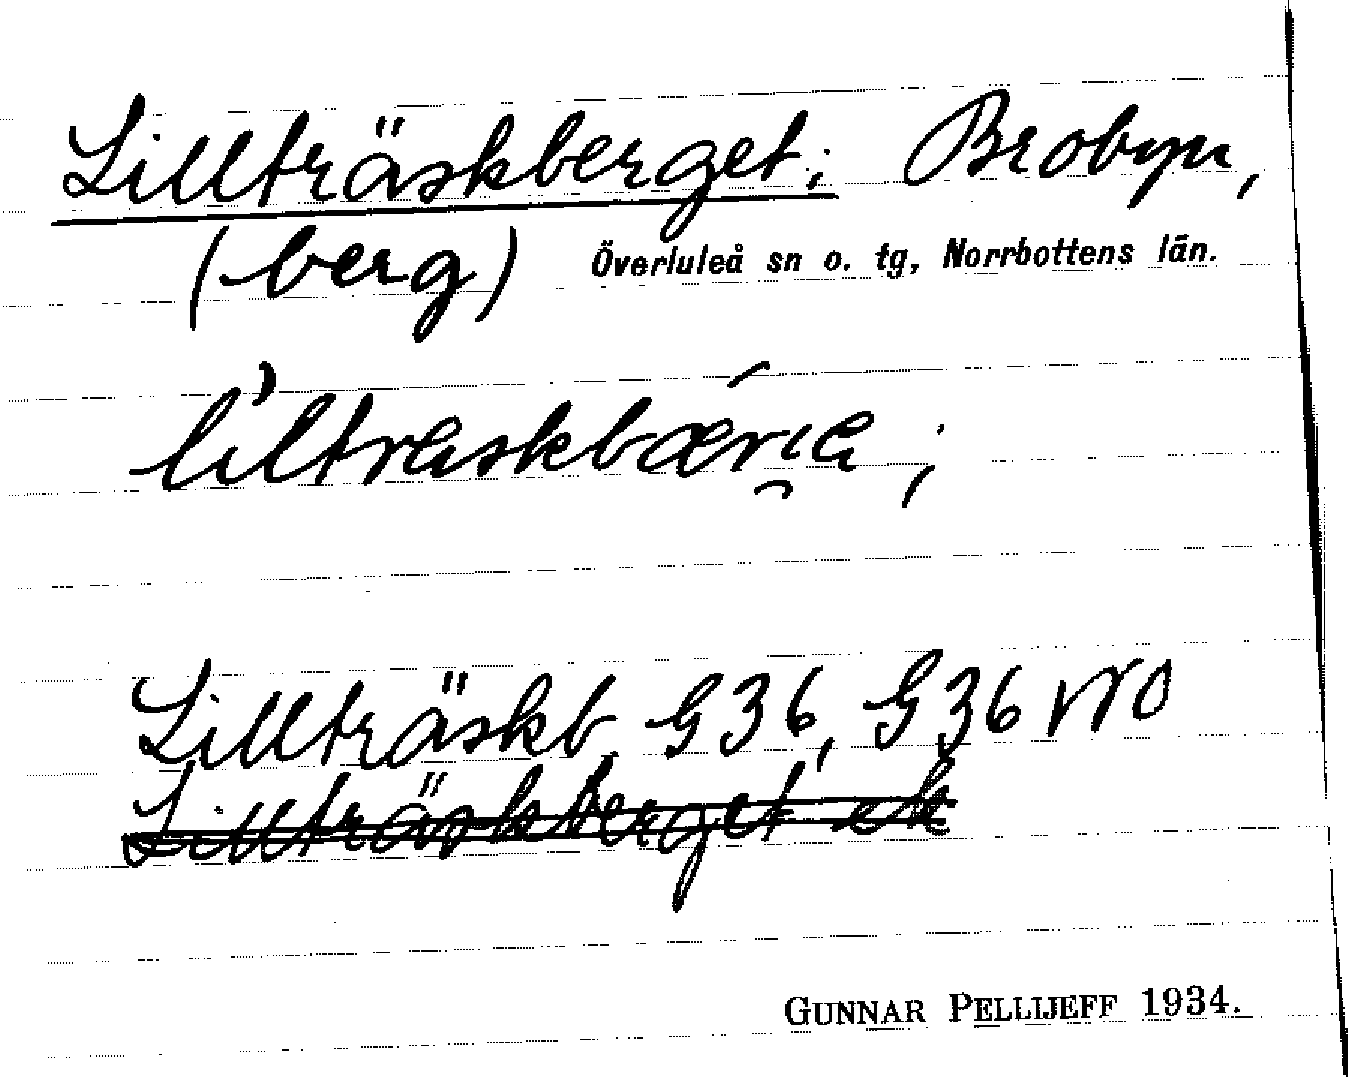 Lillträskberget; Brobyn,
(berg) Överluleå sn o. tg, Norrbottens län.
Lillträskb. G36, G36 NO
Lillträskberget ek
GUNNAR PELLIJEFF 1934.